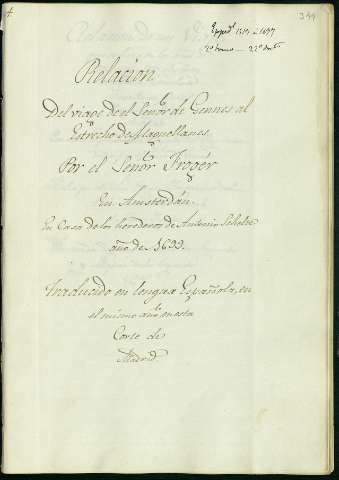 344
Exped.s 1519 a 1697
2º tomo — 22º docto
Relacion
Del viage de el Señor de Gennes al
Estrecho de Magallanes
Por el Señor Frogér
En Amsterdán.
En Casa de los herederos de Antonio Schelte
año de 1699.
Traducido en lengua Española, en
el mismo año en esta
Corte de
Madrid